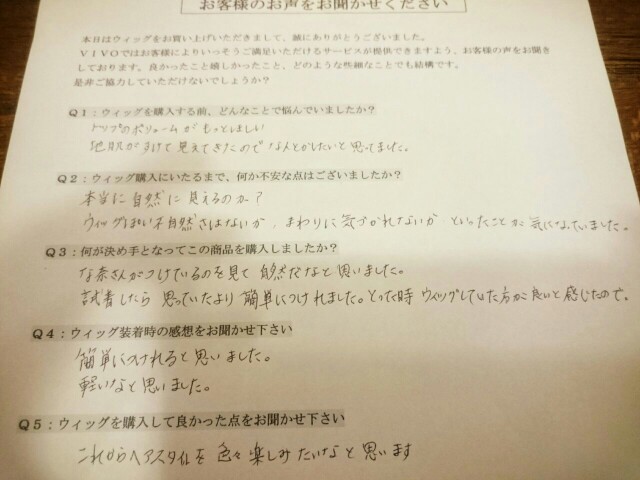 お客様のお声をお聞かせください
本日はウィッグをお買い上げいただきまして、誠にありがとうございました。
VIVOではお客様によりいっそうご満足いただけるサービスが提供できますよう、お客様の声をお聞き
しております。良かったこと嬉しかったこと、どのような些細なことでも結構です。
是非ご協力していただけないでしょうか？
Q1：ウィッグを購入する前、どんなことで悩んでいましたか？
トップのボリュームがもっとほしい
地肌がすけて見えてきたのでなんとかしたいと思ってました。
Q2：ウィッグ購入にいたるまで、何か不安な点はございましたか？
本当に自然に見えるのか？
ウィッグぽい不自然さはないか、まわりに気づかれないかといったことが気になっていました。
Q3：何が決め手となってこの商品を購入しましたか？
な奈さんがつけているのを見て自然だなと思いました。
試着したら思っていたより簡単につけれました。とった時ウィッグしていた方が良いと感じたので。
Q4：ウィッグ装着時の感想をお聞かせ下さい
簡単につけれると思いました。
軽いなと思いました。
Q5：ウィッグを購入して良かった点をお聞かせ下さい
これからヘアスタイルを色々楽しみたいなと思います